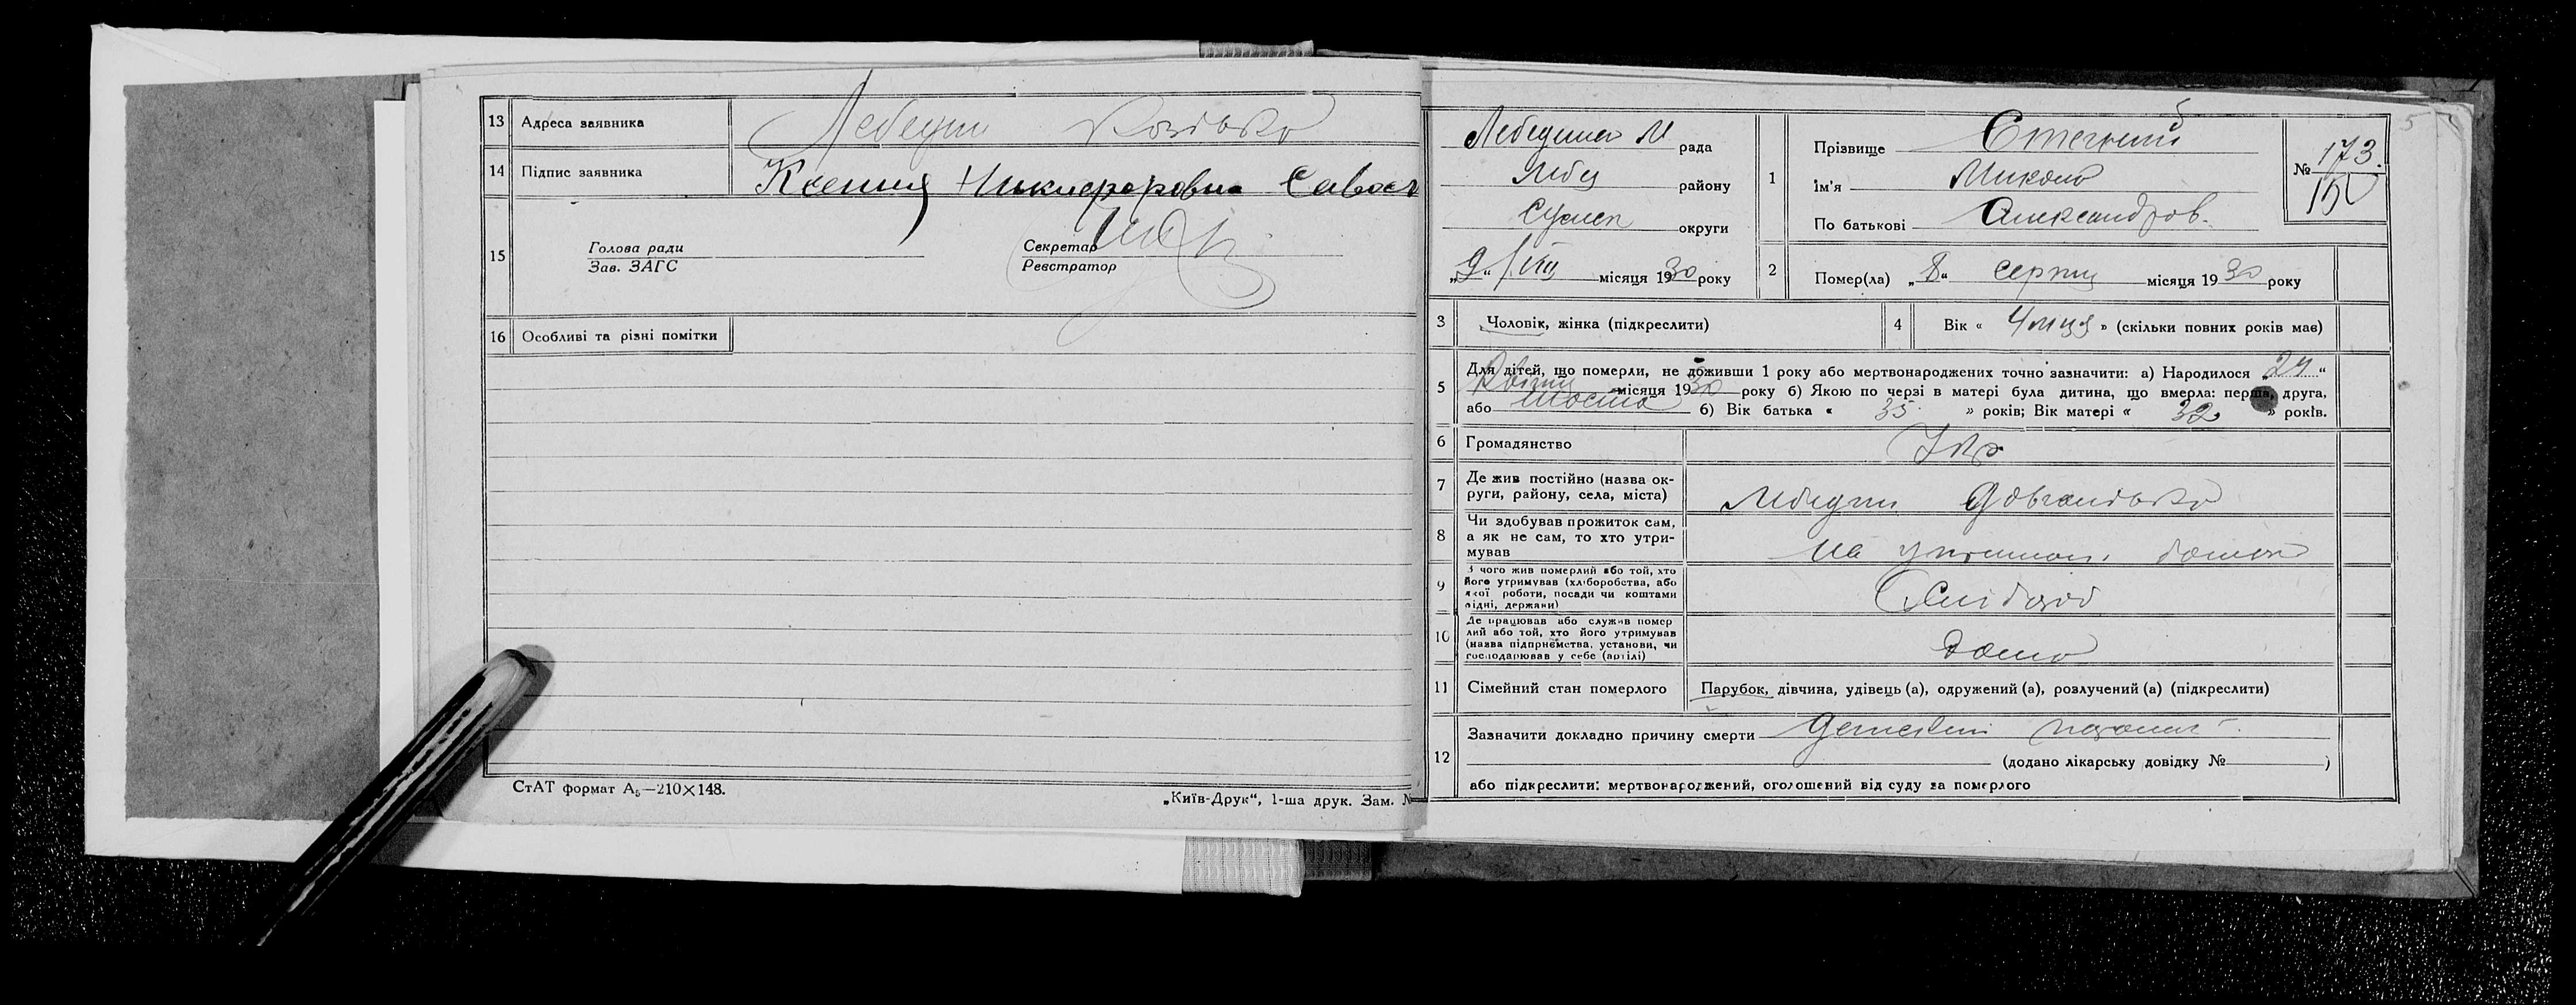 13 Адреса заявника Лебедин
14 Підпис заявника Ксения Никифоровна
15 Голова ради
Зав. ЗАГС
Секретар
Реєстратор
16 Особливі та різні помітки
СтАТ формат А₅—210×148.
„Київ-Друк“, 1-ша друк. Зам. №
рада
району
округи
„9“ / VIII місяця 1930 року
1 Прізвище
Ім'я Микола
По батькові Александров.
№ 173.
2 Помер(ла) „8“ серпня місяця 1930 року
3 Чоловік, жінка (підкреслити)
4 Вік « 4 міця » (скільки повних років має)
5 Для дітей, що померли, не доживши 1 року або мертвонароджених точно зазначити: а) Народилося „24“
місяця 1930 року б) Якою по черзі в матері була дитина, що вмерла: перша, друга,
або шоста б) Вік батька « 35 » років; Вік матері « 32 » років.
6 Громадянство Укр
7 Де жив постійно (назва ок-
руги, району, села, міста) Лебедин
8 Чи здобував прожиток сам,
а як не сам, то хто утри-
мував на
9 З чого жив померлий або той, хто
його утримував (хліборобства, або
якої роботи, посади чи коштами
рідні, держави)
10 Де працював або служив помер
лий або той, хто його утримував
(назва підприємства, установи, чи
господарював у себе (артілі) дома
11 Сімейний стан померлого Парубок, дівчина, удівець (а), одружений (а), розлучений (а) (підкреслити)
12 Зазначити докладно причину смерти
(додано лікарську довідку № )
або підкреслити: мертвонароджений, оголошений від суду за померлого